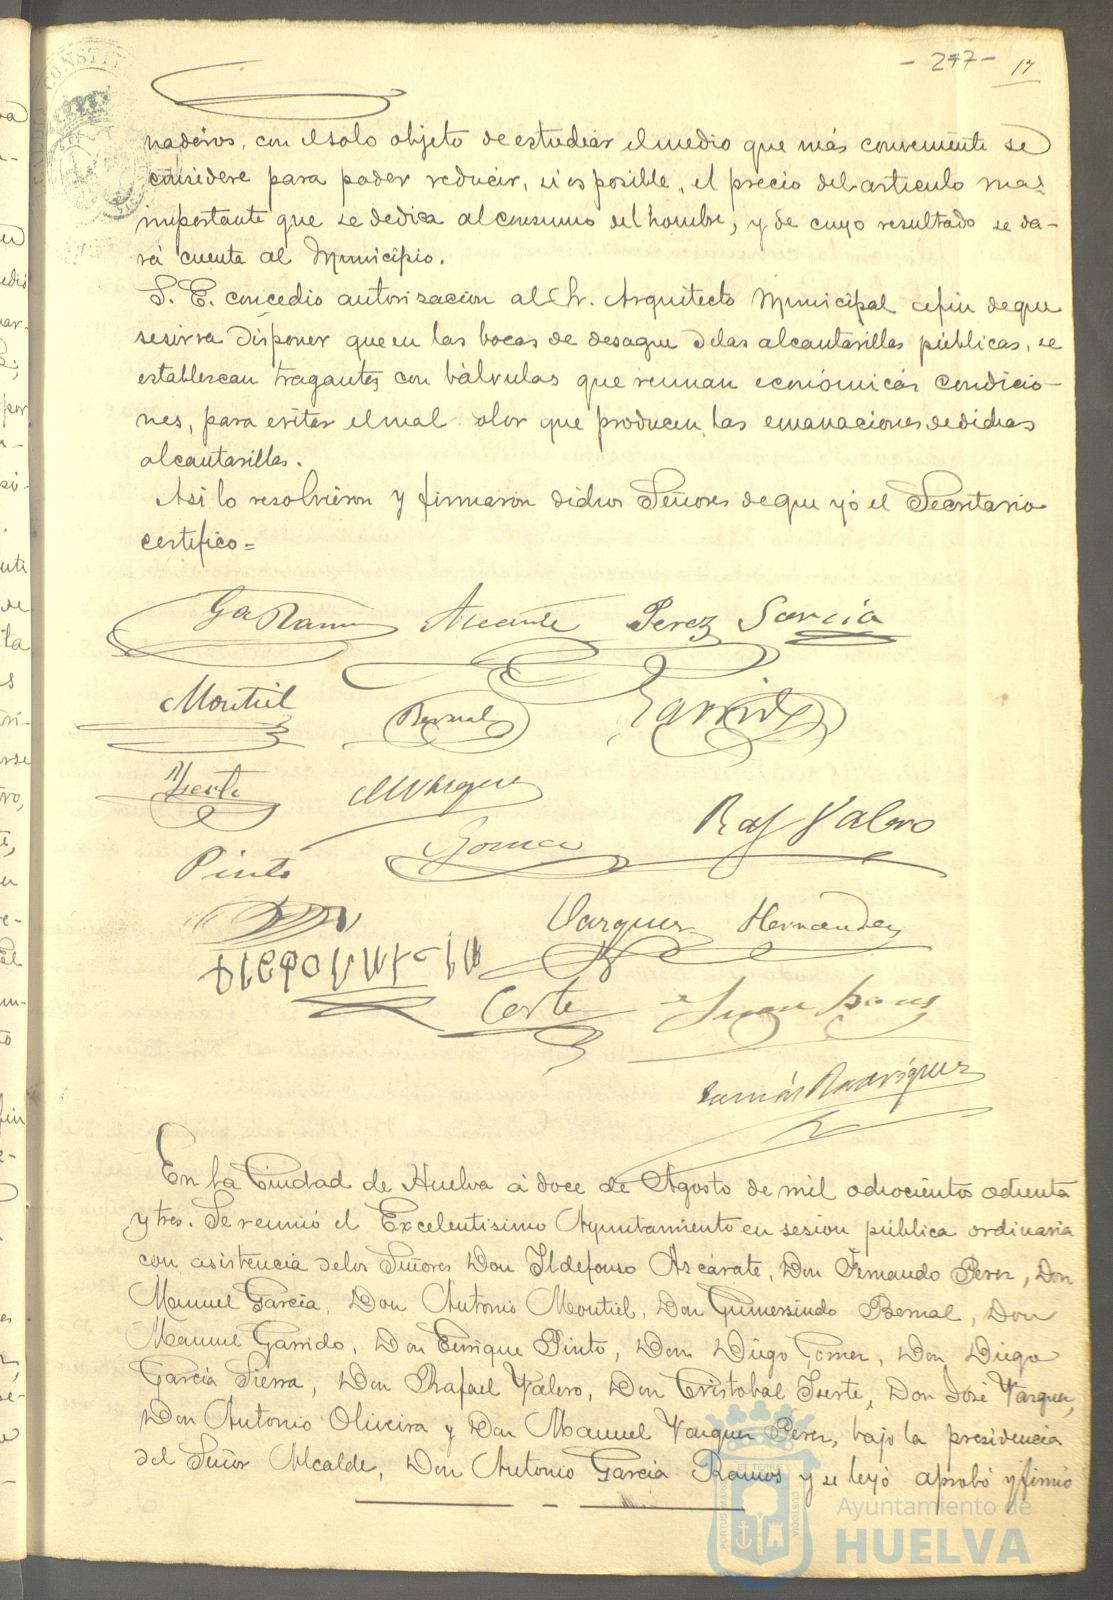 - 277 - 17
naderos, con el solo objeto de estudiar el medio que más conveniente se
considere para poder reducir, si es posible, el precio del articulo mas
importante que se dedica al consumo del hombre, y de cuyo resultado se da-
rá cuenta al Municipio.
S. E. concedio autorizacion al Sr. Arquitecto Municipal afin de que
se sirva disponer que en las bocas de desague de las alcantarillas públicas, se
establezcan tragantes con bálvulas que reunan económicas condicio-
nes, para evitar el mal olor que producen las emanaciones de dichas
alcantarillas.
Asi lo resolvieron y firmaron dichos Señores de que yó el Secretario
certifico=
Ga Ramos Azcarate Perez Garcia
Montiel Bernal Garrido
Yserte M Vazquez
Gomez Raf Valero
Pinto
Vazquez Hernandez
Corte Juan
Tomás Rodriguez
En la Ciudad de Huelva á doce de Agosto de mil ochocientos ochenta
y tres. Se reunió el Excelentisimo Ayuntamiento en sesion pública ordinaria
con asistencia de los Señores Don Ildefonso Azcárate, Don Fernando Perez, Don
Manuel Garcia, Don Antonio Montiel, Don Gumersindo Bernal, Don
Manuel Garrido, Don Enrique Pinto, Don Diego Gomez, Don Diego
Garcia Sierra, Don Rafael Valero, Don Cristobal Yserte, Don José Vazquez,
Don Antonio Oliveira y Don Manuel Vazquez Perez, bajo la presidencia
del Señor Alcalde, Don Antonio Garcia Ramos y se leyó aprobó y firmó
PORTUS MARIS ET TERRE CUSTODIA
Ayuntamiento de
HUELVA